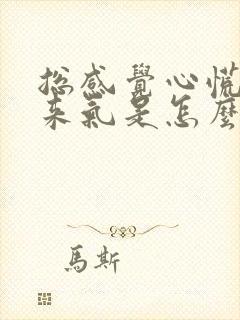 总感覺心慌
来氣是怎麼
馬斯